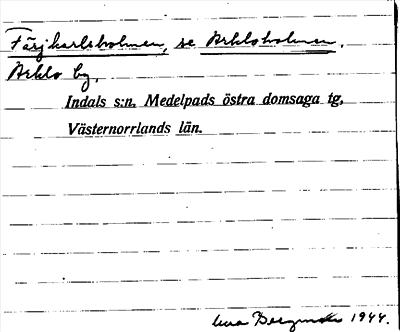 Färjkarlsholmen, se Arkloholmen.
Arklo by,
Indals s:n. Medelpads östra domsaga tg,
Västernorrlands län.
1944.